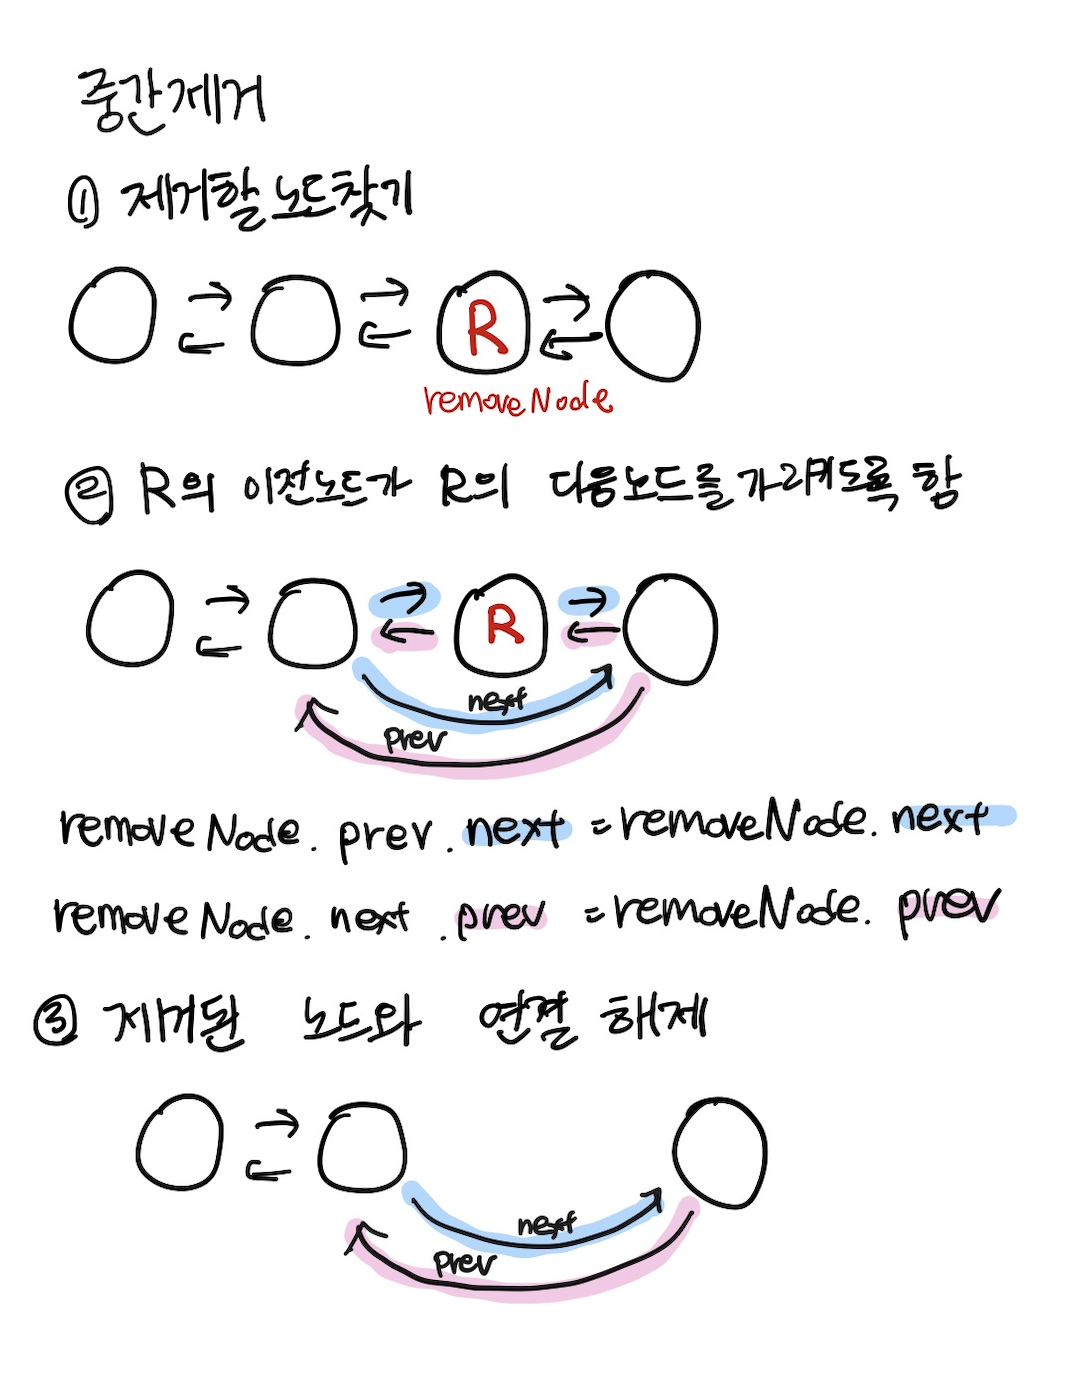 중간제거
① 제거할 노드찾기
R
removeNode
② R의 이전노드가 R의 다음노드를 가리키도록 함
R
next
prev
removeNode. prev. next = removeNode. next
removeNode. next .prev = removeNode. prev
③ 제거된 노드와 연결 해제
next
prev